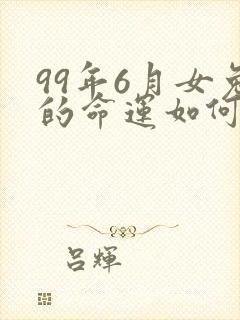 99年6月女兔
的命运如何
吕辉